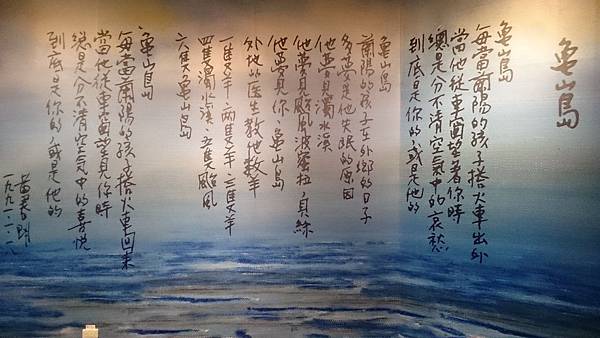 龜山島
龜山島
每當蘭陽的孩子搭火車出外
當他從車窗望著你時
總是分不清空氣中的哀愁
到底是你的,或是他的
龜山島
蘭陽的孩子在外鄉的日子
多夢是他失眠的原因
他夢見濁水溪
他夢見颱風波蜜拉,貝絲
他夢見你,龜山島
外地的醫生教他數羊
一隻羊,兩隻羊,三隻羊
四隻濁水溪,五隻颱風
六隻龜山島
龜山島
每當蘭陽的孩子搭火車回來
當他從車窗望見你時
總是分不清空氣中的喜悅
到底是你的,或是他的
黃春明